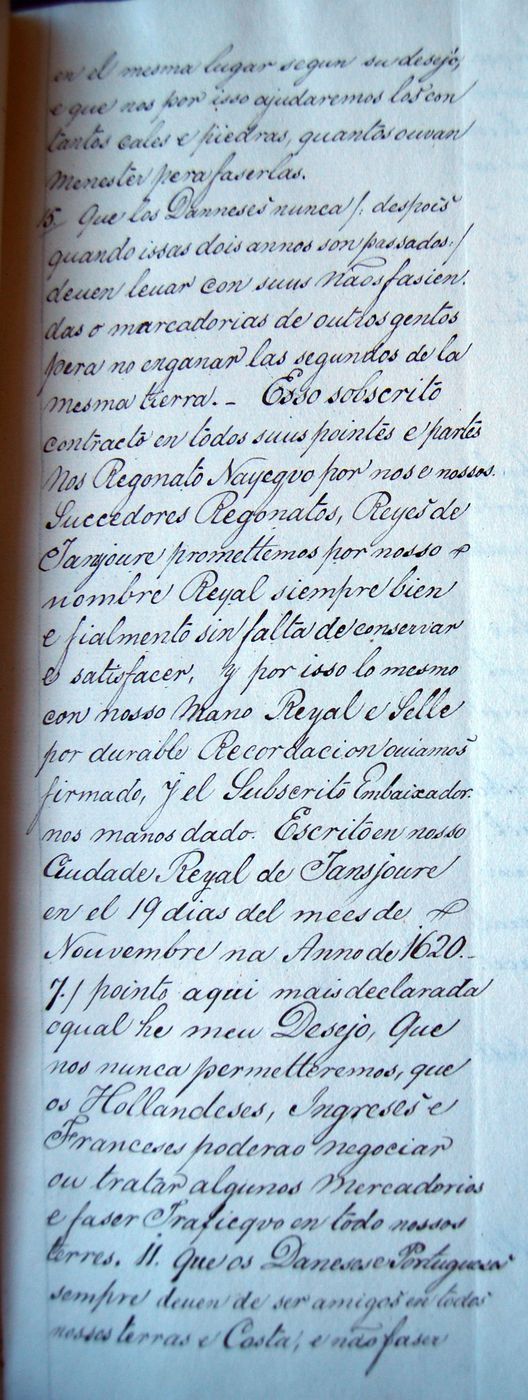 en el mesma lugar segun su desejo,
e que nos por isso ajudaremos los con
tantos cales e piedras, quantos ouvan
Menester pera faserlas.
15. Que los Danneses nunca /: despois
quando issas dois annos son passados :/
deuen leuar con suus Nãos fasien.
das o marcadorias de outros gentos
pera no enganar las segundos de la
mesma tierra. _ Esso sobscrito
contracto en todos suus pointes e partes
Nos Regonato Nayeqvo por nos e nossos.
Succedores Regonatos, Reyes de
Tanjoure promettemos por nosso
nombre Reyal siempre bien
e fialmento sin falta de conservar
e satisfacer, y por isso lo mesmo
con nosso Mano Reyal e Selle
por durable Recordacion ouiamos
firmado, Y el Subscrito Embaixador.
nos manos dado. Escrito en nosso
Ciudade Reyal de Tansjoure
en el 19 dias del mees de
Nouvembre na Anno de 1620. _
7./ pointo aqui mais declarada
oqual he meu Desejo, Que
nos nunca permetteremos, que
os Hollandeses, Ingreses e
Franceses poderao negociar
ou tratar algunos Mercadorios
e faser Traficqvo en todo nossos
terres. 11. Que os Daneses e Portugueses
sempre deuen de ser amigos en todos
nosses terras e Costa, e não faser